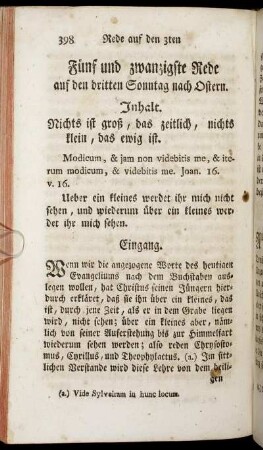 398 Rede auf den 3ten
Fünf und zwanzigste Rede
auf den dritten Sonntag nach Ostern.
Inhalt.
Nichts ist groß, das zeitlich, nichts
klein, das ewig ist.
Modicum, & jam non videbitis me, & ite-
rum modicum, & videbitis me. Joan. 16.
v. 16.
Ueber ein kleines werdet ihr mich nicht
sehen, und wiederum über ein kleines wer-
det ihr mich sehen.
Eingang.
Wenn wir die angezogene Worte des heutigen
Evangeliums nach dem Buchstaben aus-
legen wollen, hat Christus seinen Jüngern hie-
durch erkläret, daß sie ihn über ein kleines, das
ist, durch jene Zeit, als er in dem Grabe liegen
wird, nicht sehen; über ein kleines aber, näm-
lich von seiner Auferstehung bis zur Himmelfart
wiederum sehen werden; also reden Chrysosto-
mus, Cyrillus, und Theophylactus. (a.) Im sitt-
lichen Verstande wird diese Lehre von dem heili-
gen
(a.) Vide Sylveiram in hunc locum.